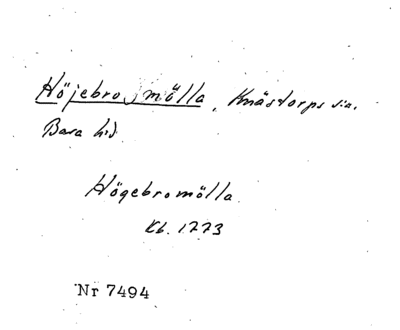 Höjebromölla, Knästorps sn.
Bara hd.
Högebromölla
Kb. 1773
Nr 7494